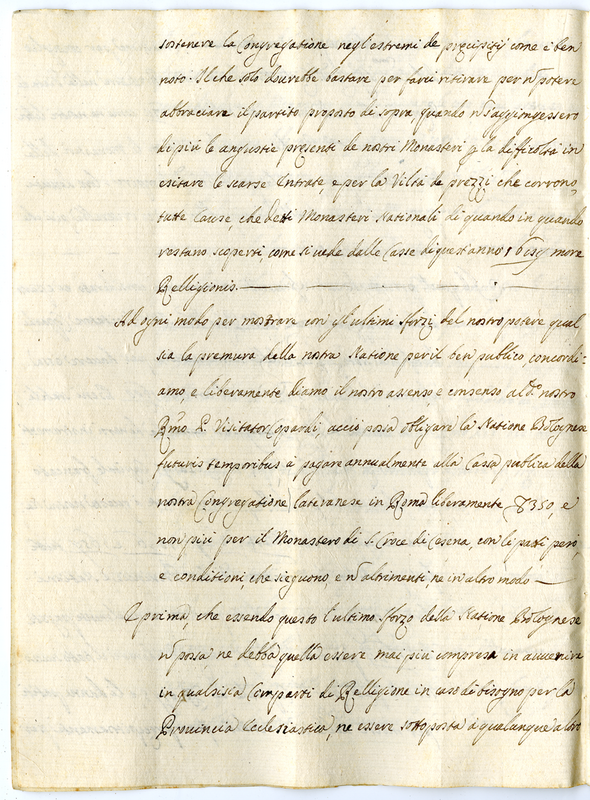 sostenere la Congregatione negl'estremi de precipitij come è ben
noto. Il che solo dourebbe bastare per farci ritirare per nō potere
abbracciare il partito proposto di sopra, quando nō s'aggiongessero
di più le angustie presenti de nostri Monasteri p la difficoltà in
esitare le scarse Intrate, e per la Viltà de prezzi che corrono,
tutte Cause, che detti Monasteri Nationali di quando in quando
restano scoperti come si vede dalle Casse di quest'anno more
Relligionis.
Ad ogni modo per mostrare con gl'ultimi sforzi del nostro potere qual
sia la premura della nostra Natione per il ben publico, concordi-
amo, e liberamente diamo il nostro assenso e consenso al dº nostro
Rmo P. Visitator Copardi, acciò possa obligare la Natione Bolognese
futuris temporibus à pagare annualmente alla Cassa publica della
nostra Congregatione Lateranese in Roma liberamente 350, e
non più per il Monastero di S. Croce di Cesena, con li patti però,
e conditioni, che sieguono, e nō altrimenti, ne in altro modo
I prima, che essendo questo l'ultimo sforzo della Natione Bolognese
nō possa ne debba quella essere mai più compresa in auuenire
in qualsisia Comparti di Relligione in caso di bisogno per la
Prouincia Ecclesiastica, ne essere sottoposta à qualunque altro